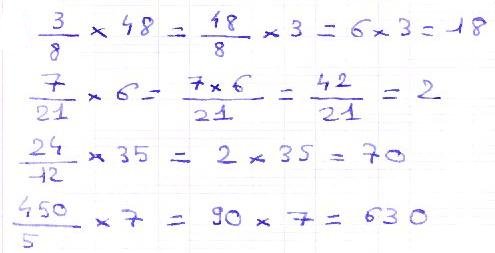 3/8 × 48 = 48/8 × 3 = 6 × 3 = 18
7/21 × 6 = 7×6/21 = 42/21 = 2
24/12 × 35 = 2 × 35 = 70
450/5 × 7 = 90 × 7 = 630